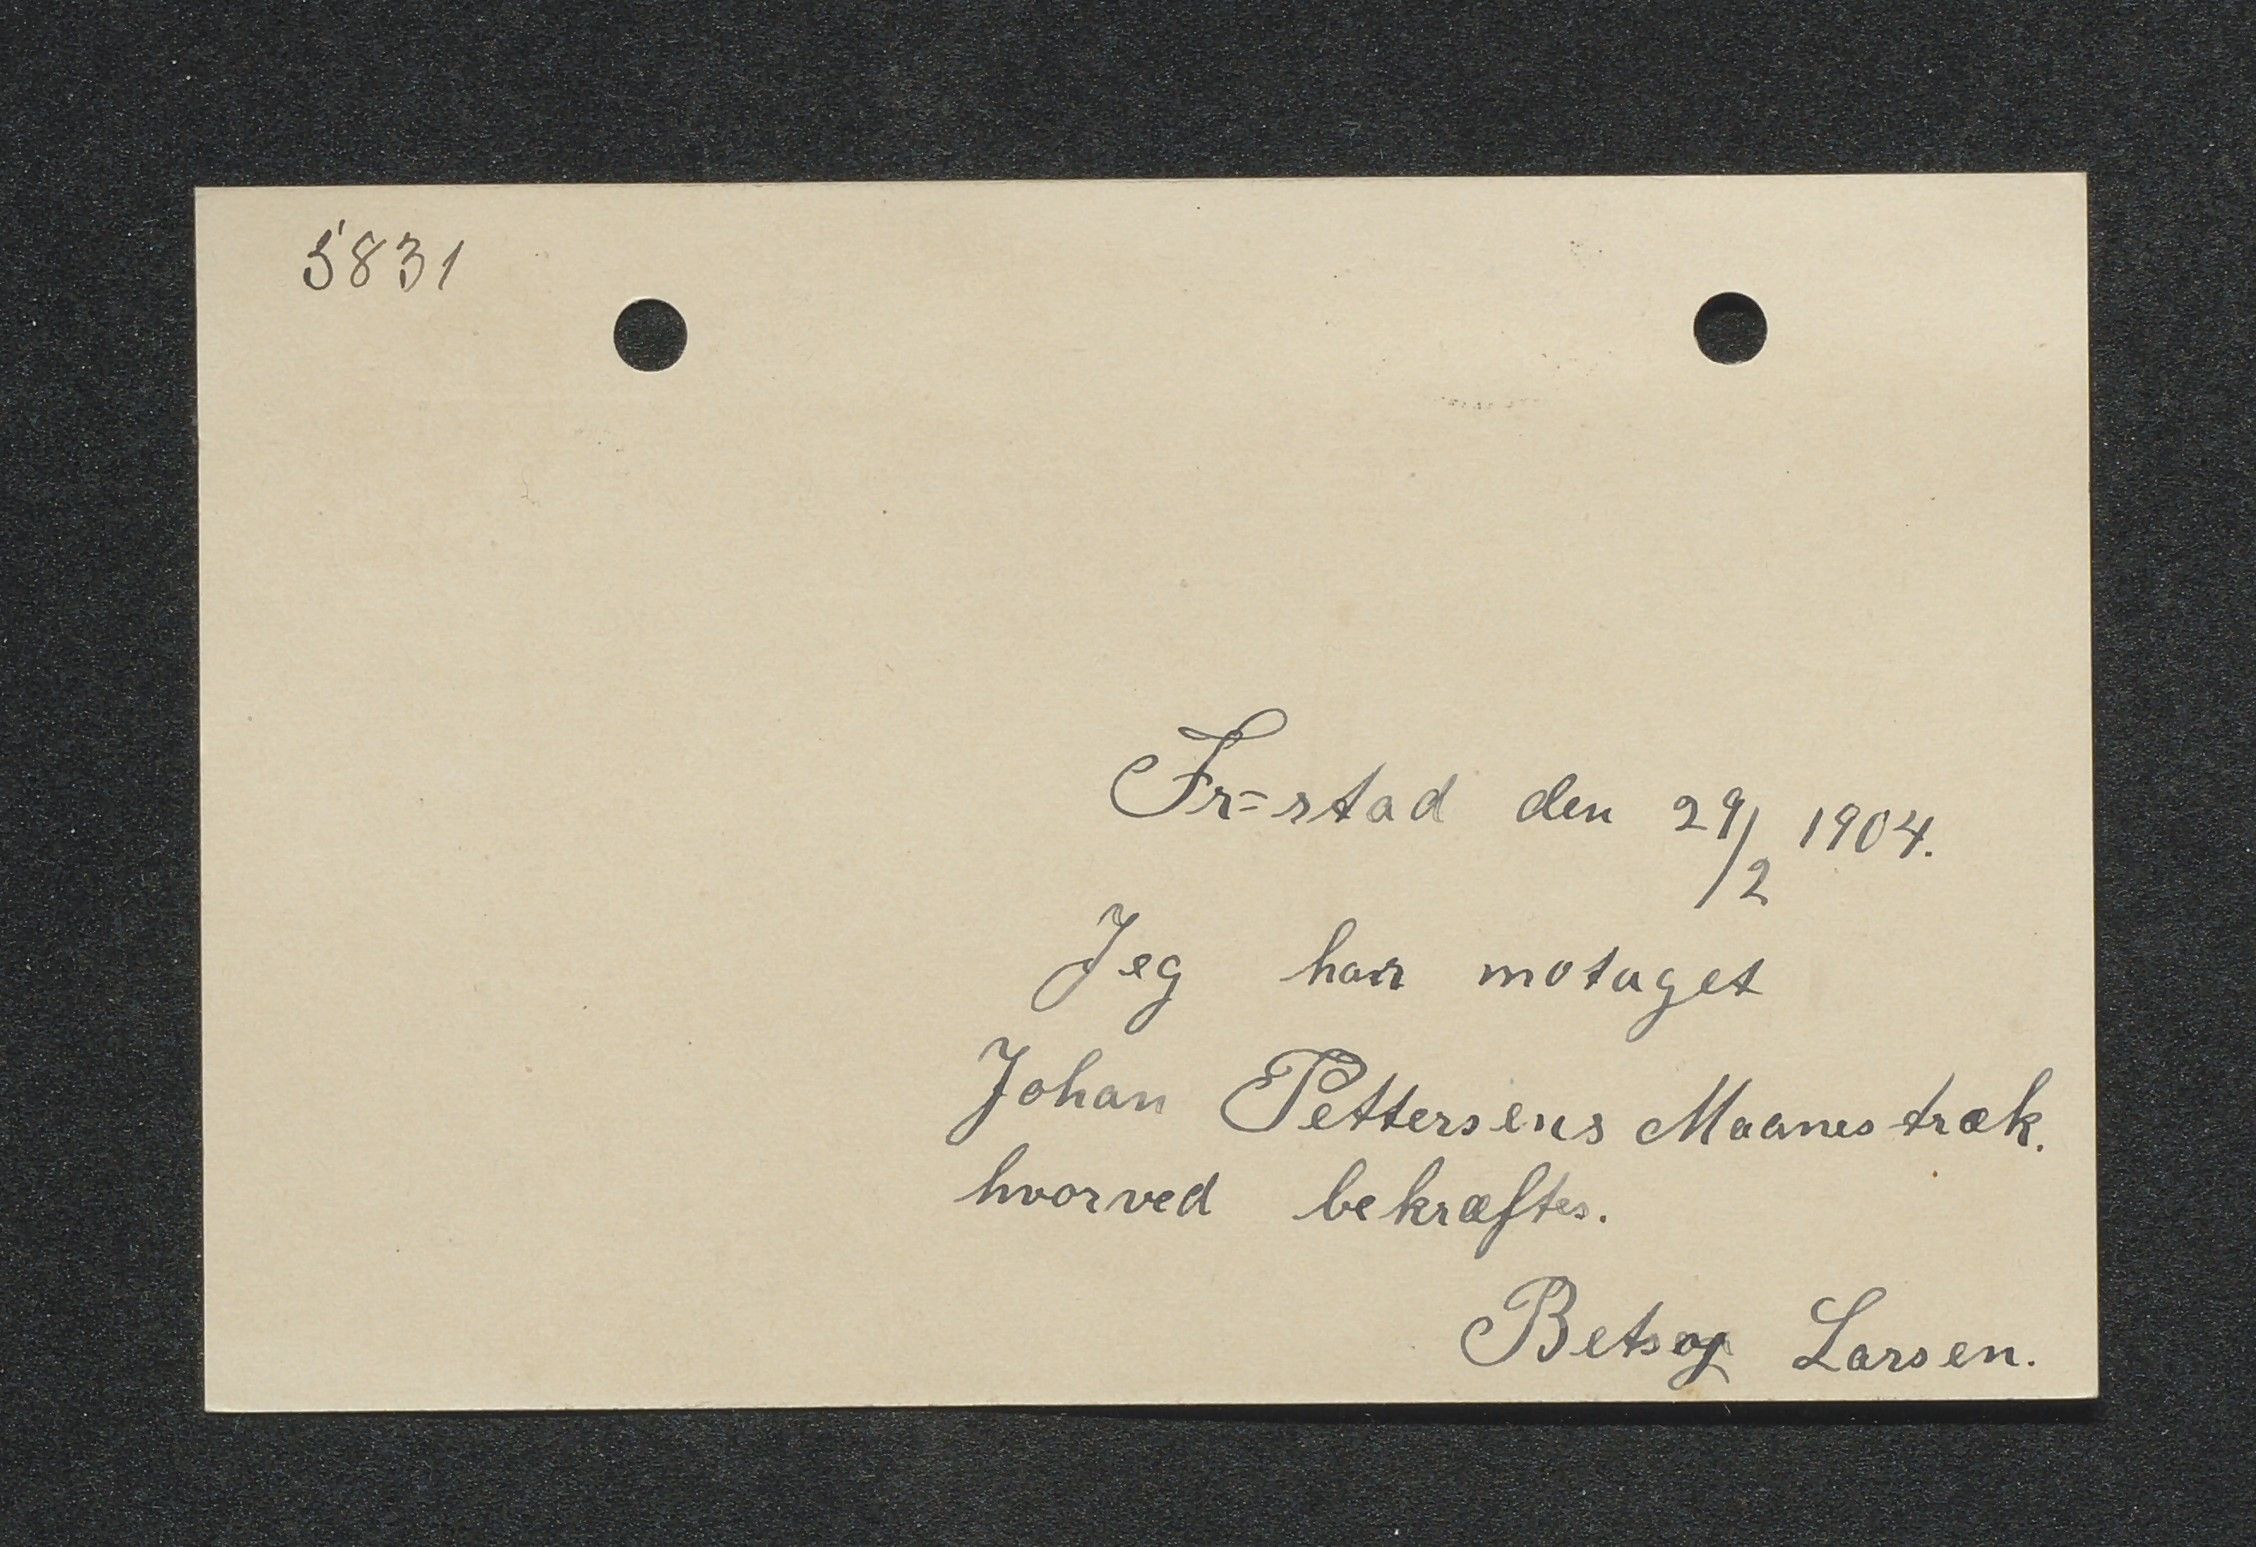 5831
Fr=stad den 29/2 1904.
Jeg har motaget
Johan Pettersens Maanestræk.
hvorved bekræftes.
Betsy Larsen.